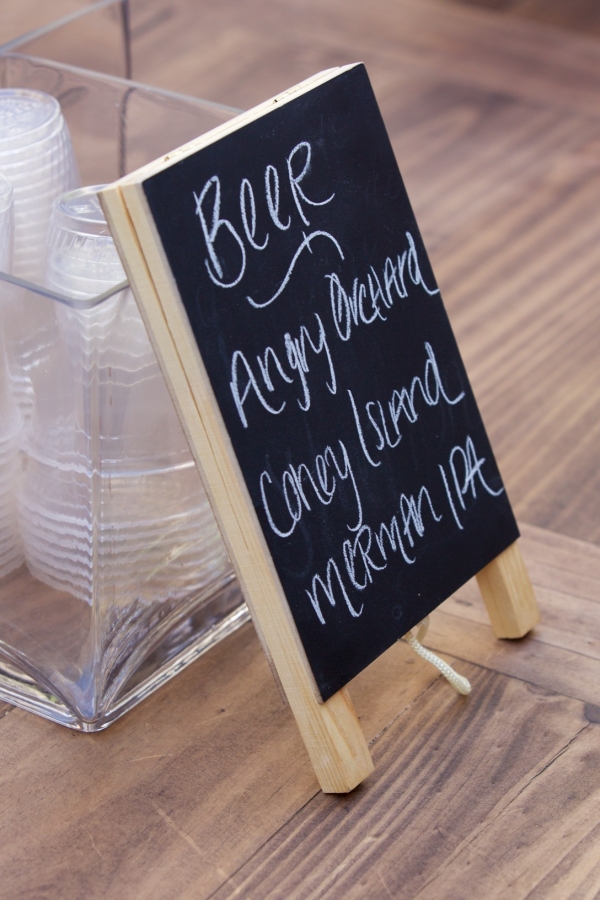 Beer
Angry Orchard
Coney Island
Merman IPA